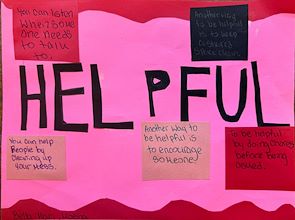 You can listen
when some
one needs
to talk
to.
Another way
to be helpful
is to keep
HELPFUL
You can help
People by
cleaning up
your mess.
Another way to
be helpful is
to encourage
someone
To be helpful
by doing chores
before being
asked.